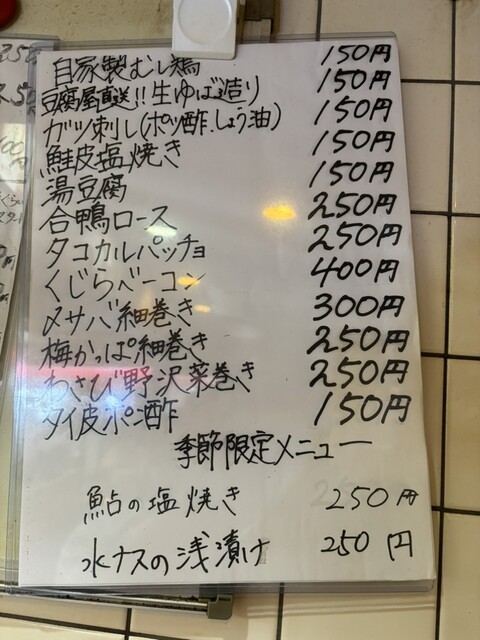 自家製むし鶏 150円
豆腐屋直送!!生ゆば造り 150円
ガツ刺し(ポン酢.しょう油) 150円
鮭皮塩焼き 150円
湯豆腐 150円
合鴨ロース 250円
タコカルパッチョ 250円
くじらベーコン 400円
〆サバ細巻き 300円
梅かっぱ細巻き 250円
わさび野沢菜巻き 250円
タイ皮ポン酢 150円
季節限定メニュー
鮎の塩焼き 250円
水ナスの浅漬け 250円